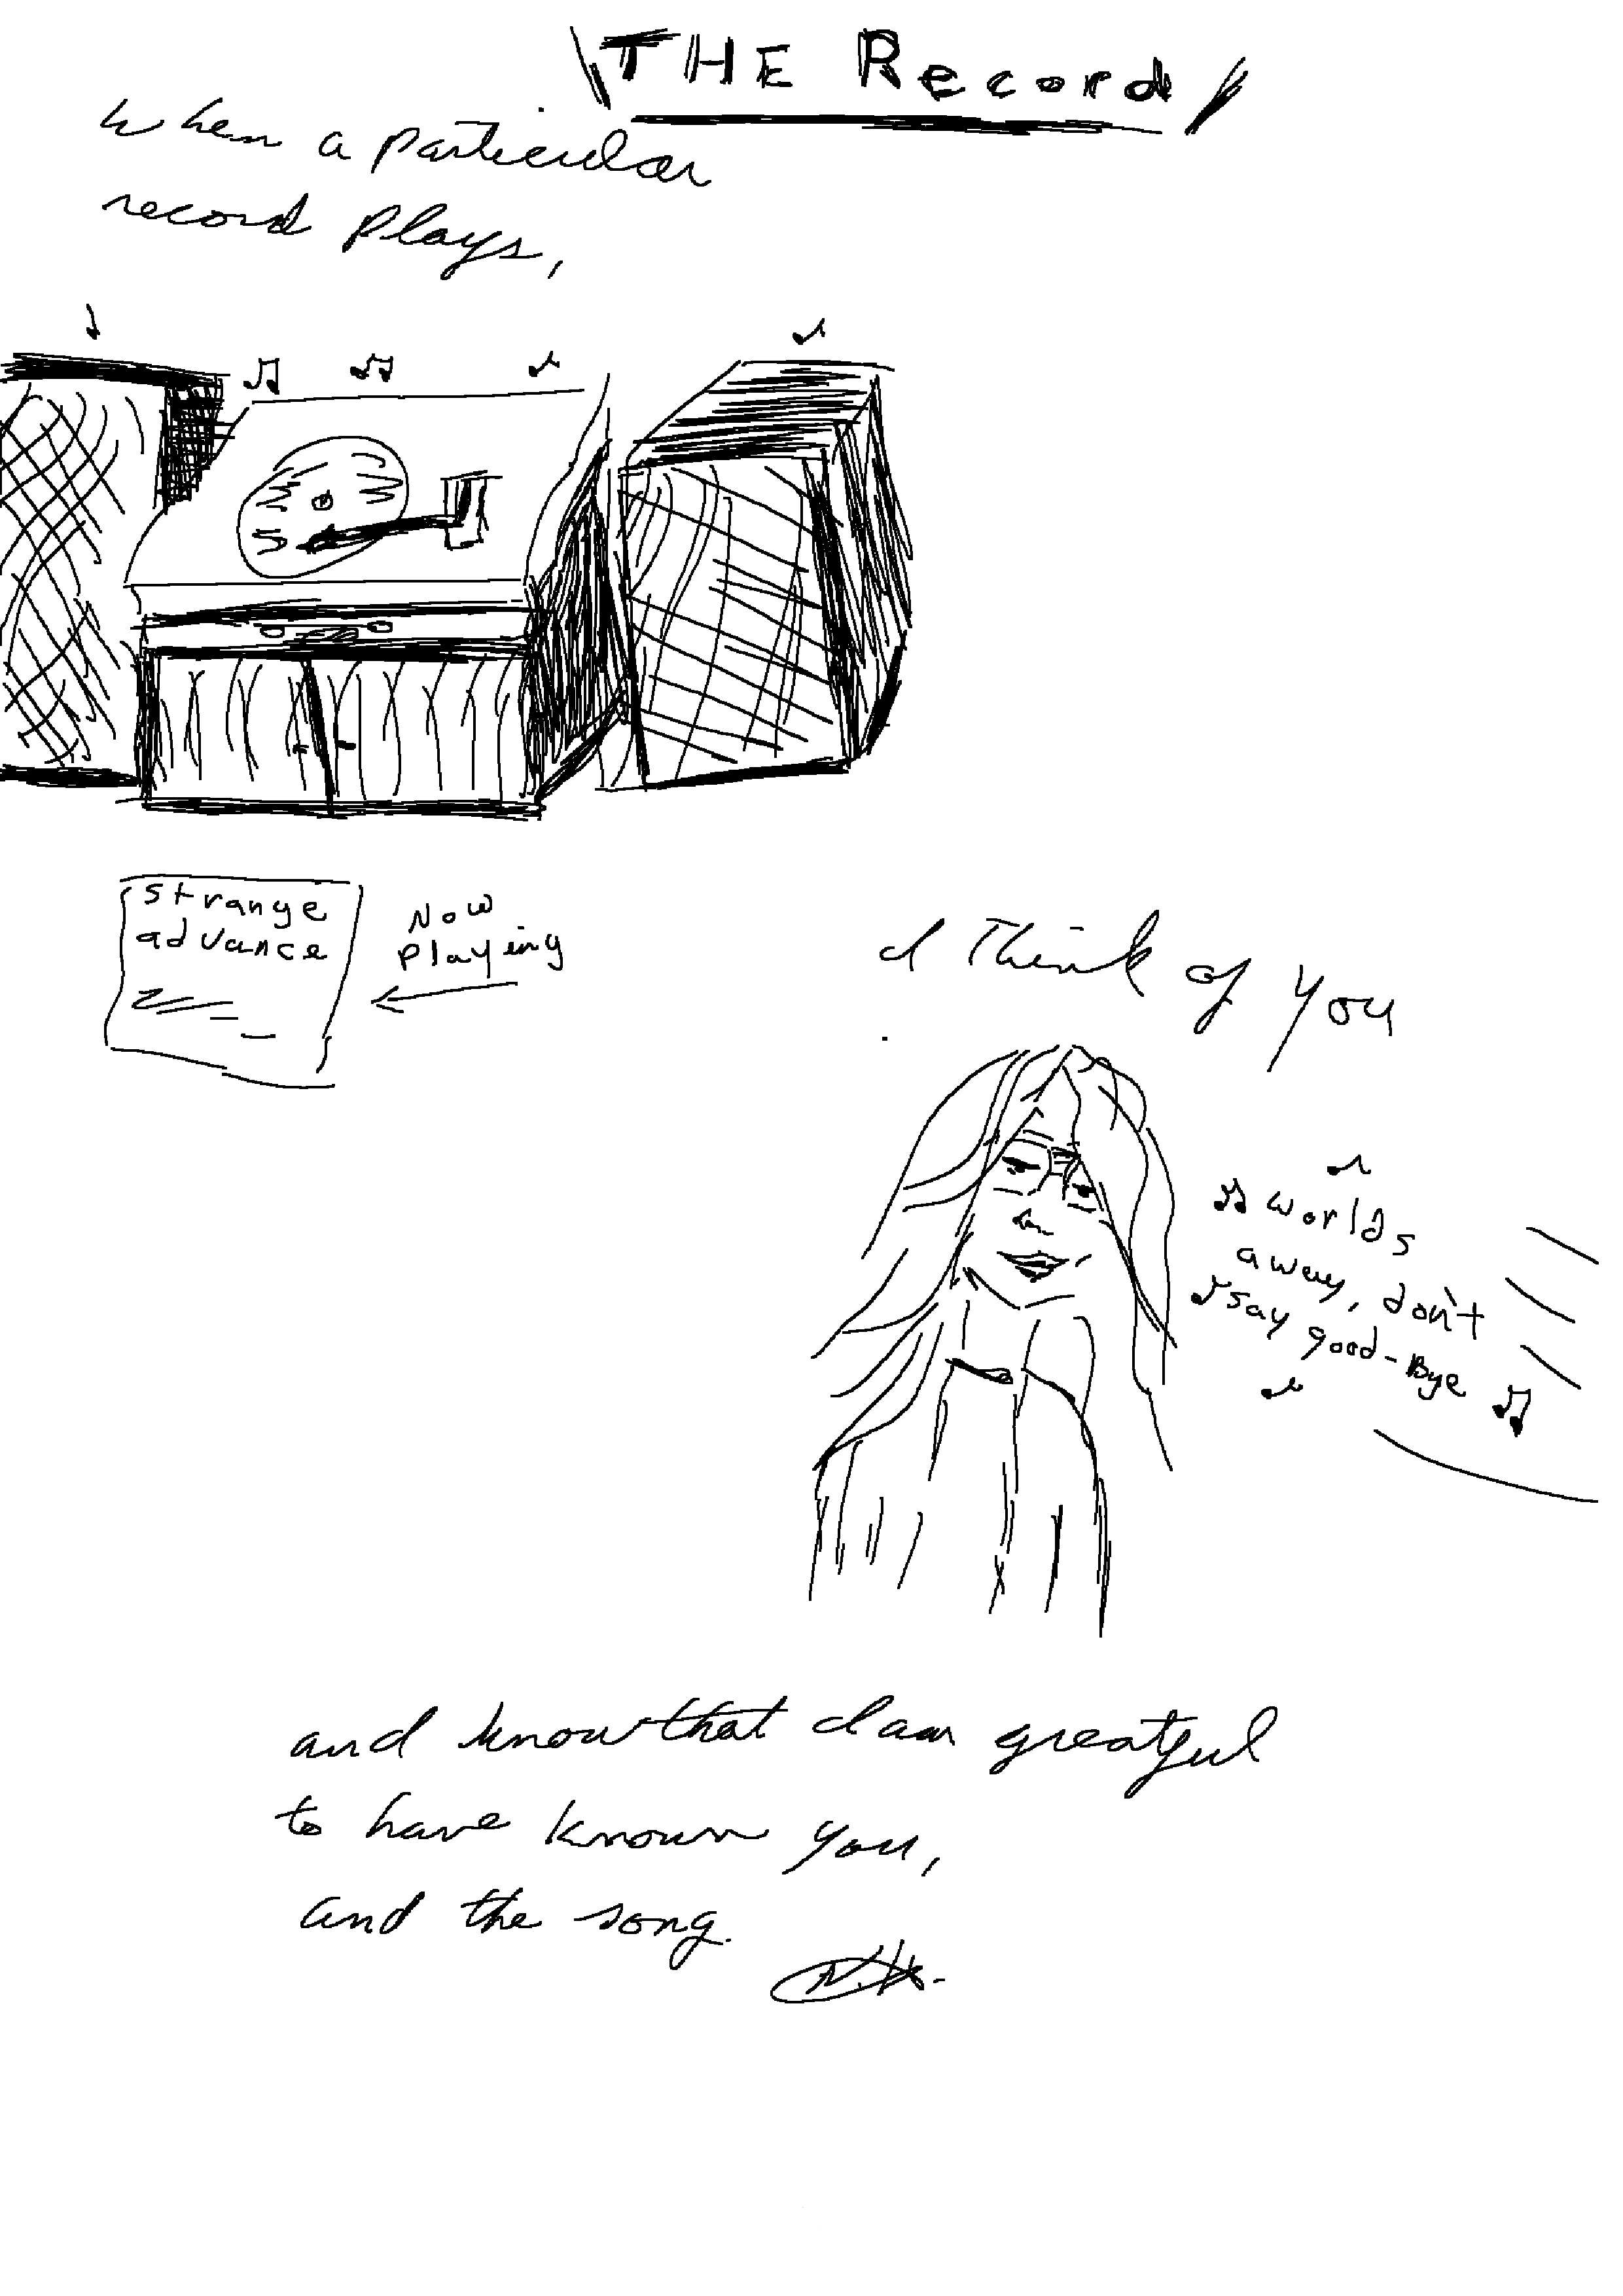 THE Record
when a particular
record plays,
strange
advance
Now
playing
I think of you
worlds
away, don't
say good-Bye
and know that I am greatful
to have known you,
and the song.
N.H.